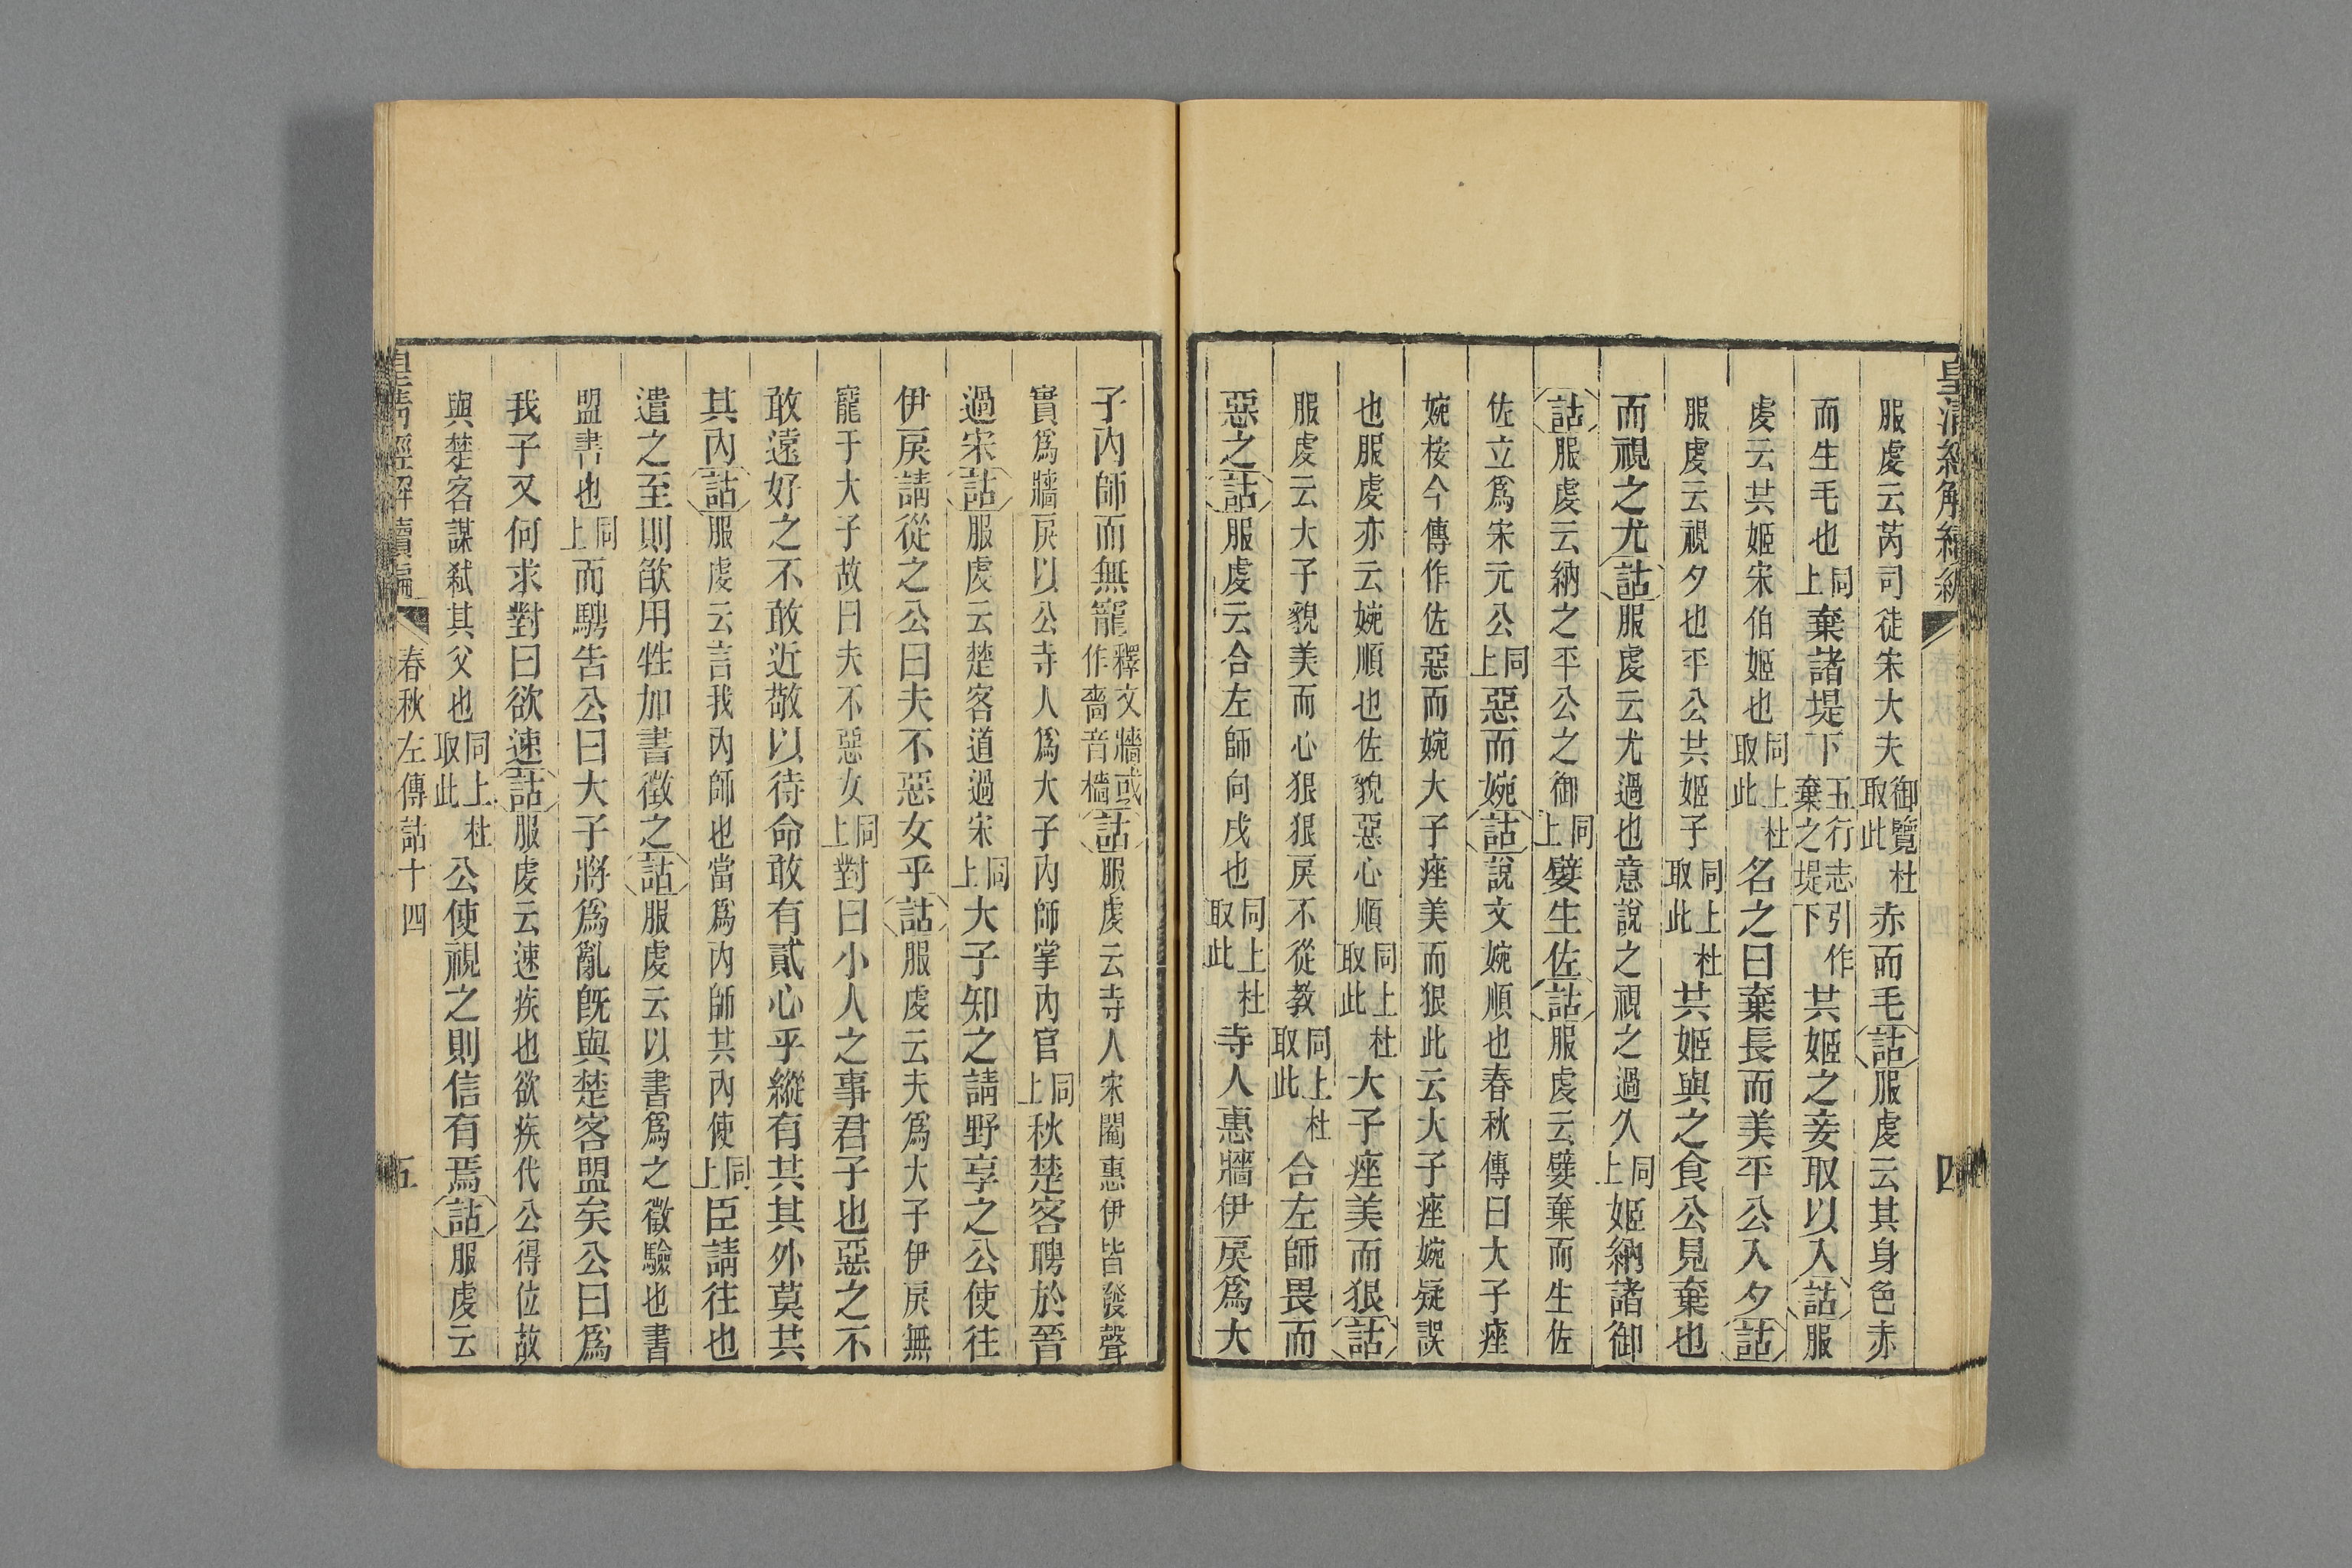 皇清經解續編
四
服虔云芮司徒宋大夫御覽杜取此赤而毛詁服虔云其身色赤
而生毛也同上棄諸堤下五行志引作棄之堤下共姬之妾取以入詁服
虔云共姬宋伯姬也同上杜取此名之曰棄長而美平公入夕詁
服虔云視夕也平公共姬子同上杜取此共姬與之食公見棄也
而視之尤詁服虔云尤過也意說之視之過久同上姬納諸御
詁服虔云納之平公之御同上嬖生佐詁服虔云嬖棄而生佐
佐立爲宋元公同上惡而婉詁說文婉順也春秋傳曰大子痤
婉按今傳作佐惡而婉大子痤美而狠此云大子痤婉疑誤
也服虔亦云婉順也佐貌惡心順同上杜取此大子痤美而狠詁
服虔云大子貌美而心狠狠戾不從教同上杜取此合左師畏而
惡之詁服虔云合左師向戌也同上杜取此寺人惠牆伊戾爲大
子內師而無寵釋文牆或作嗇音檣詁服虔云寺人宋閹惠伊皆發聲
實爲牆戾以公寺人爲大子內師掌內官同上秋楚客聘於晉
過宋詁服虔云楚客道過宋同上大子知之請野享之公使往
伊戾請從之公曰夫不惡女乎詁服虔云夫爲大子伊戾無
寵于大子故曰夫不惡女同上對曰小人之事君子也惡之不
敢遠好之不敢近敬以待命敢有貳心乎縱有共其外莫共
其內詁服虔云言我內師也當爲內師其內使同上臣請往也
遣之至則欿用牲加書徵之詁服虔云以書爲之徵驗也書
盟書也同上而騁告公曰大子將爲亂旣與楚客盟矣公曰爲
我子又何求對曰欲速詁服虔云速疾也欲疾代公得位故
與楚客謀弒其父也同上杜取此公使視之則信有焉詁服虔云
皇淸經解續編
春秋左傳詁十四
五